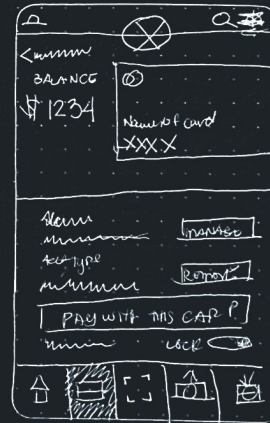 BALANCE
$ 1234
Name of card
XXXX
Name
MANAGE
Acc type
REMOVE
PAY WITH THIS CARD
LOCK